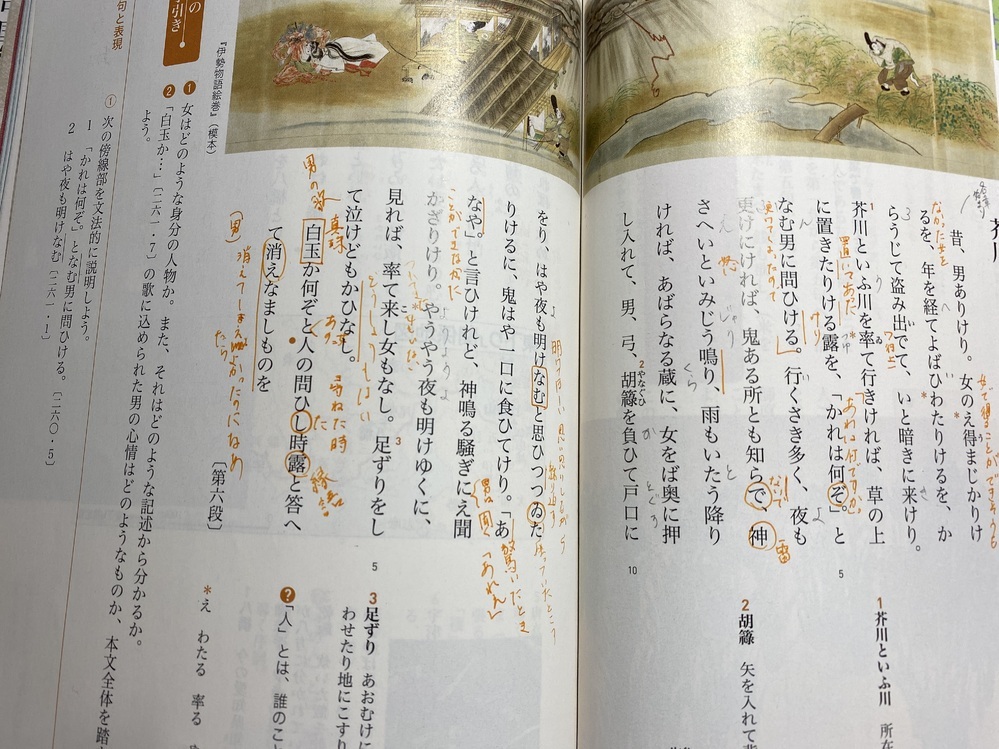 芥川
昔、男ありけり。女のえ得まじかりけ
るを、年を経てよばひわたりけるを、か
らうじて盗み出でて、いと暗きに来けり。
芥川といふ川を率て行きければ、草の上
に置きたりける露を、「かれは何ぞ。」と
なむ男に問ひける。行くさき多く、夜も
更けにければ、鬼ある所とも知らで、神
さへいといみじう鳴り、雨もいたう降り
ければ、あばらなる蔵に、女をば奥に押
し入れて、男、弓、胡簶を負ひて戸口に
やなぐひ
5
10
1 芥川といふ川 所在
2 胡簶 矢を入れて背
をり、はや夜も明けなむと思ひつつゐた
りけるに、鬼はや一口に食ひてけり。「あ
なや。」と言ひけれど、神鳴る騒ぎにえ聞
かざりけり。やうやう夜も明けゆくに、
見れば、率て来し女もなし。足ずりをし
て泣けどもかひなし。
白玉か何ぞと人の問ひし時露と答へ
て消えなましものを
〔第六段〕
5
3 足ずり あおむけに
わせたり地にこすり
?「人」とは、誰のこと
*え わたる 率る
『伊勢物語絵巻』(模本)
の
引き
1 女はどのような身分の人物か。また、それはどのような記述から分かるか。
2 「白玉か…」〔二六一・7〕の歌に込められた男の心情はどのようなものか、本文全体を踏
よう。
句と表現
① 次の傍線部を文法的に説明しよう。
1 「かれは何ぞ。」となむ男に問ひける。〔二六〇・5〕
2 はや夜も明けなむ〔二六一・1〕
置いてあった
けり
つゆ
雷
男の
真珠
尋ねた時
縁語
驚いたとき
消えてしまえばよかったのになあ